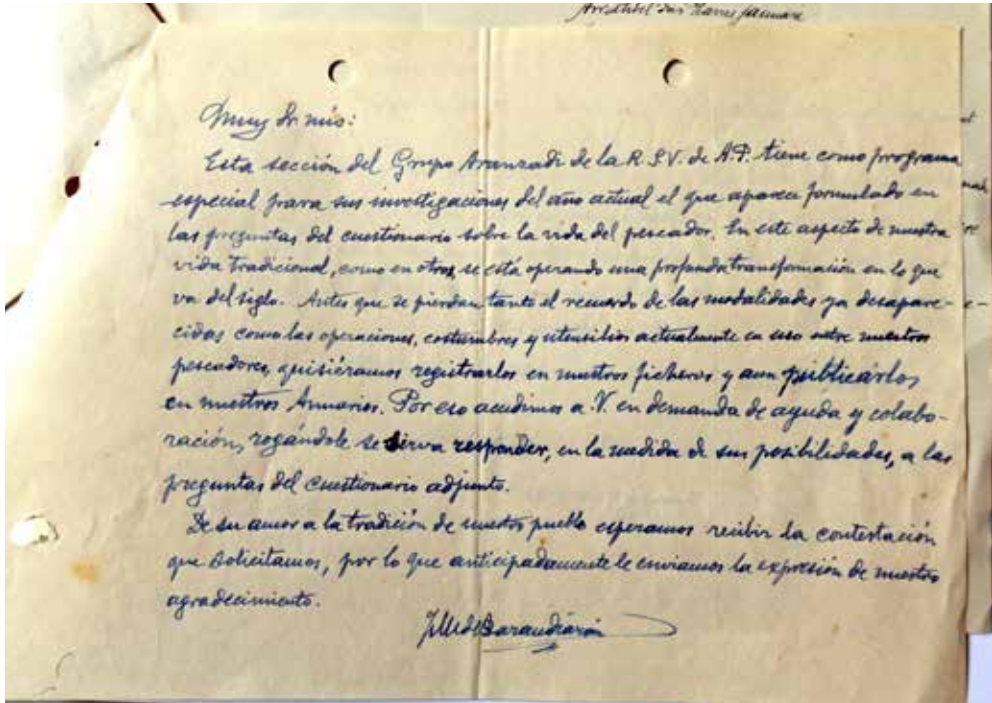 Muy Sr. mio:
Esta sección del Grupo Aranzadi de la R. S. V. de A. P. tiene como programa
especial para sus investigaciones del año actual el que aparece formulado en
las preguntas del cuestionario sobre la vida del pescador. En este aspecto de nuestra
vida tradicional, como en otros, se está operando una profunda transformación en lo que
va del siglo. Antes que se pierdan tanto el recuerdo de las modalidades ya desapare-
cidas como las operaciones, costumbres y utensilios actualmente en uso entre nuestros
pescadores, quisiéramos registrarlos en nuestros ficheros y aun publicarlos
en nuestros Anuarios. Por eso acudimos a V. en demanda de ayuda y colabo-
ración, rogándole se sirva responder, en la medida de sus posibilidades, a las
preguntas del cuestionario adjunto.
De su amor a la tradición de nuestro pueblo esperamos recibir la contestación
que solicitamos, por lo que anticipadamente le enviamos la expresión de nuestro
agradecimiento.
J. M. de Barandiarán